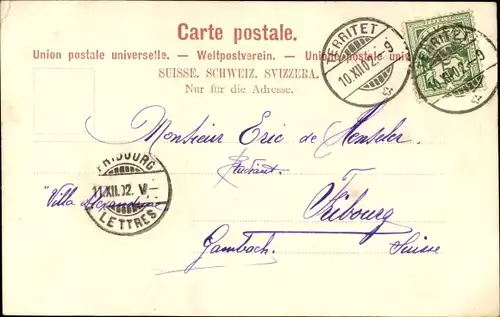 Carte postale.
Union postale universelle. — Weltpostverein. — Unione postale universale
SUISSE. SCHWEIZ. SVIZZERA.
Nur für die Adresse.
TERRITET
10.XII.02.-9
TERRITET
Monsieur Eric de
Étudiant.
FRIBOURG
11.XII.02. V-
LETTRES
"Villa
Fribourg
Gambach. Suisse